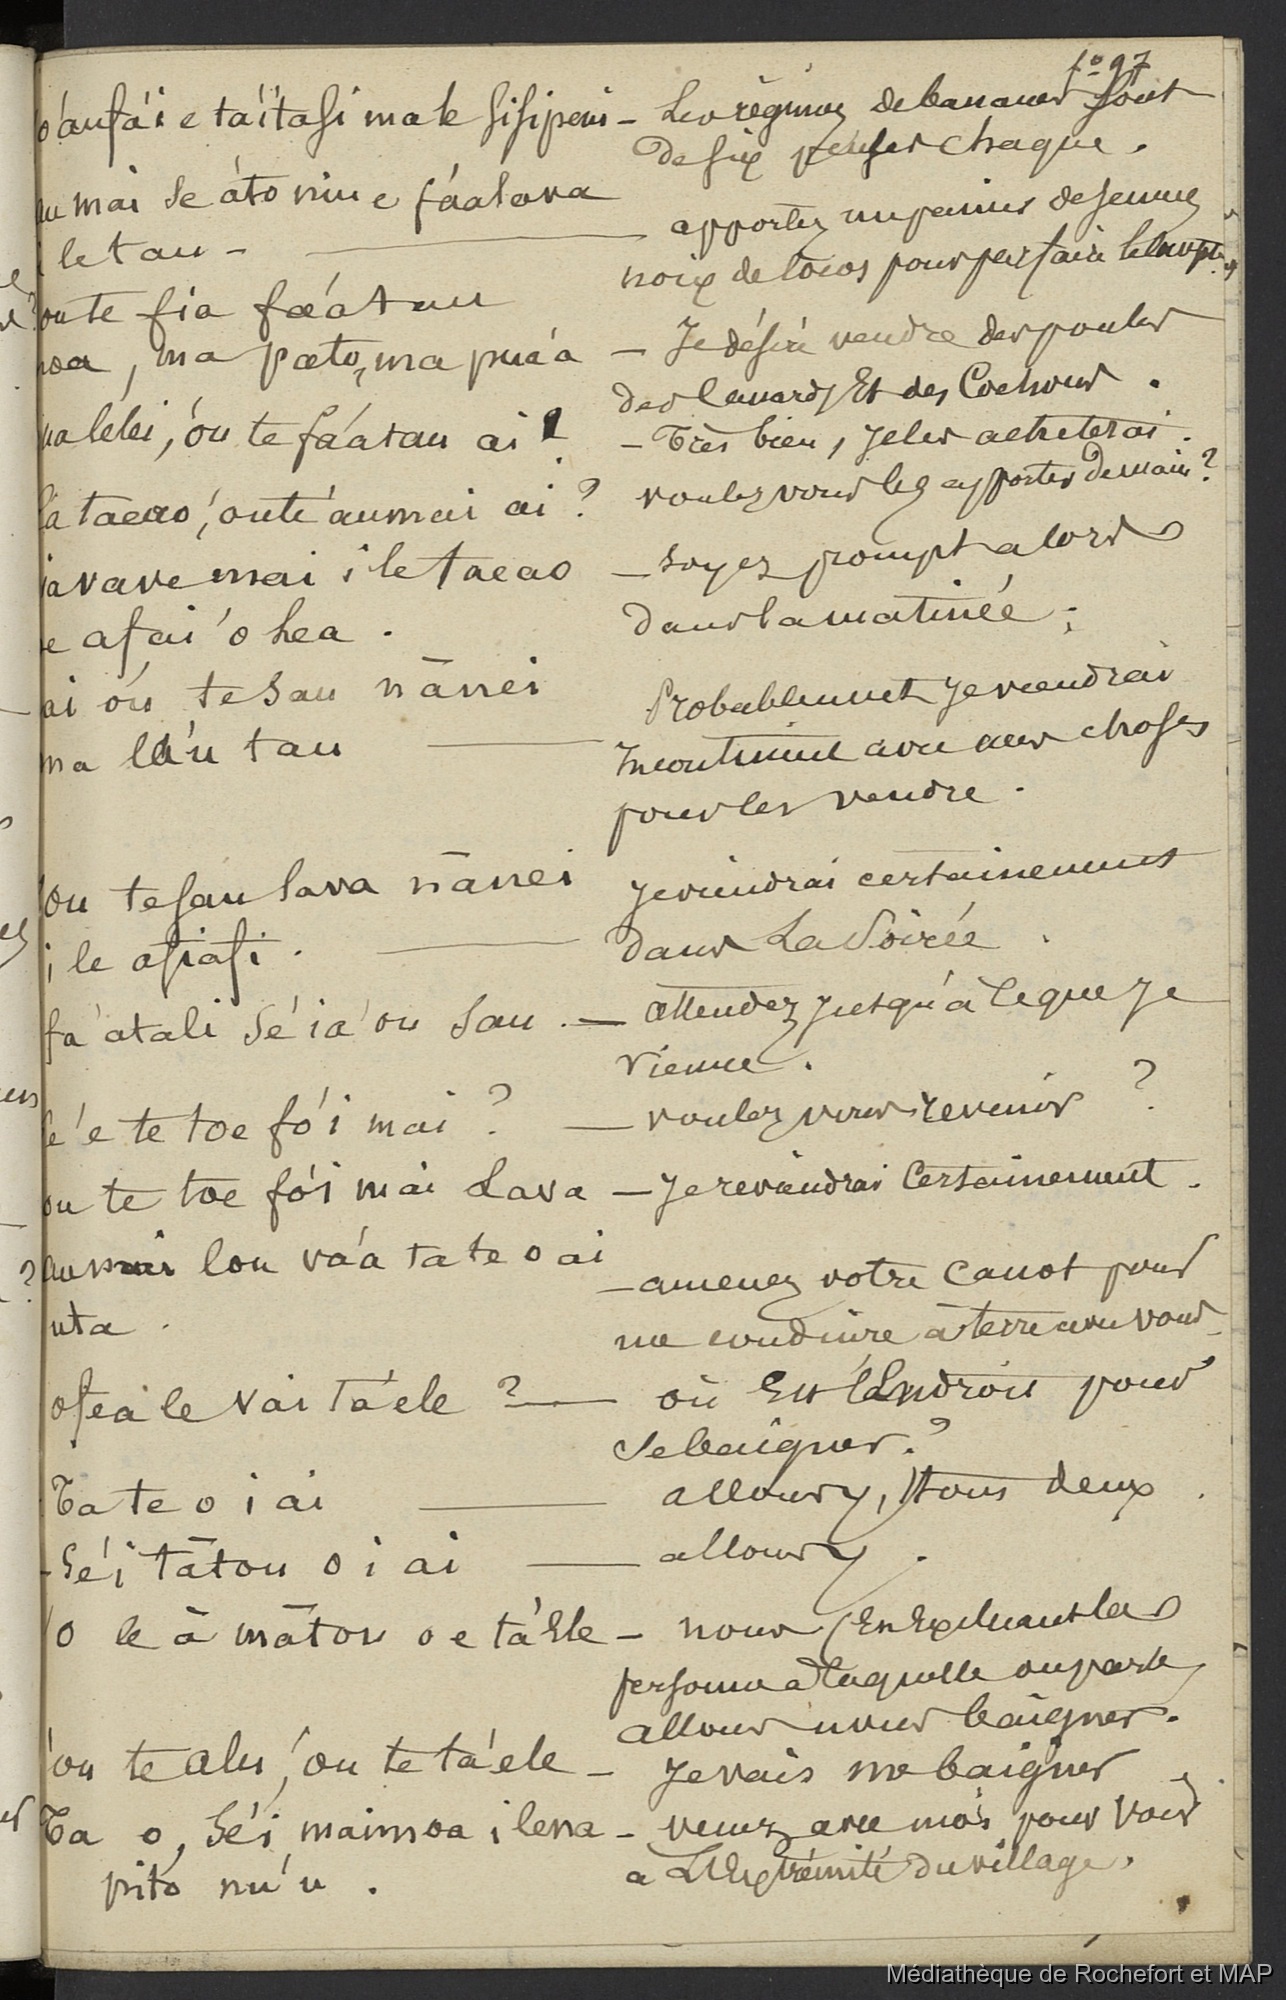 fo 97
o'aufá'i e tá'itasi ma le sisipeni – Les régimes de bananes sont
de six pences chaque.
au mai se áto niu e fáatava
apportez un panier de jeunes
i le tau –
noix de Cocos pour parfaire le compte
ou te fia fáatau
moa, ma pato, ma puá'a – Je désire vendre des poules
des Canards Et des Cochons.
ua lelei, 'ou te fáatau ai ? – Très bien, je les achèterai.
á taeao, 'ou te áumai ai ? voulez vous les apporter Demain ?
ia vave mai i le taeao – soyez prompt alors
e afai 'o hea . dans la matinée ;
ai óu te sau nānei Probablement je viendrai
ma láu tau Incontinent avec des choses
pour les vendre .
'ou te sau lava nānei je viendrai certainement
i le afiafi . dans La Soirée .
fa'atali Sé'ia'ou Sau . – attendez jusqu'à Ceque je
vienne .
e te toe fó'i mai ? – voulez vous revenir ?
ou te toe fó'i mai Lava – Je reviendrai Certainement .
aumai lou vá'a ta te o ai
– amenez votre Canot pour
uta .
me conduire à terre avec vous
o fea le vai tá'ele ? – où Est l'Endroit pour
se baigner ?
Ta te o i ai allons y, tous deux .
– Sé'i tātou o i ai – allons y .
'o le ā mātou o e tá'Ele – nous (En Excluant la
personne à laquelle on parle,
allons nous baigner .
'ou te alu, 'ou te tá'ele – Je vais me baigner
Ta o, Sé'i maimoa i lena – venez avec moi pour voir
pito nu'u . a L'Extrémité du village .
Médiathèque de Rochefort et MAP